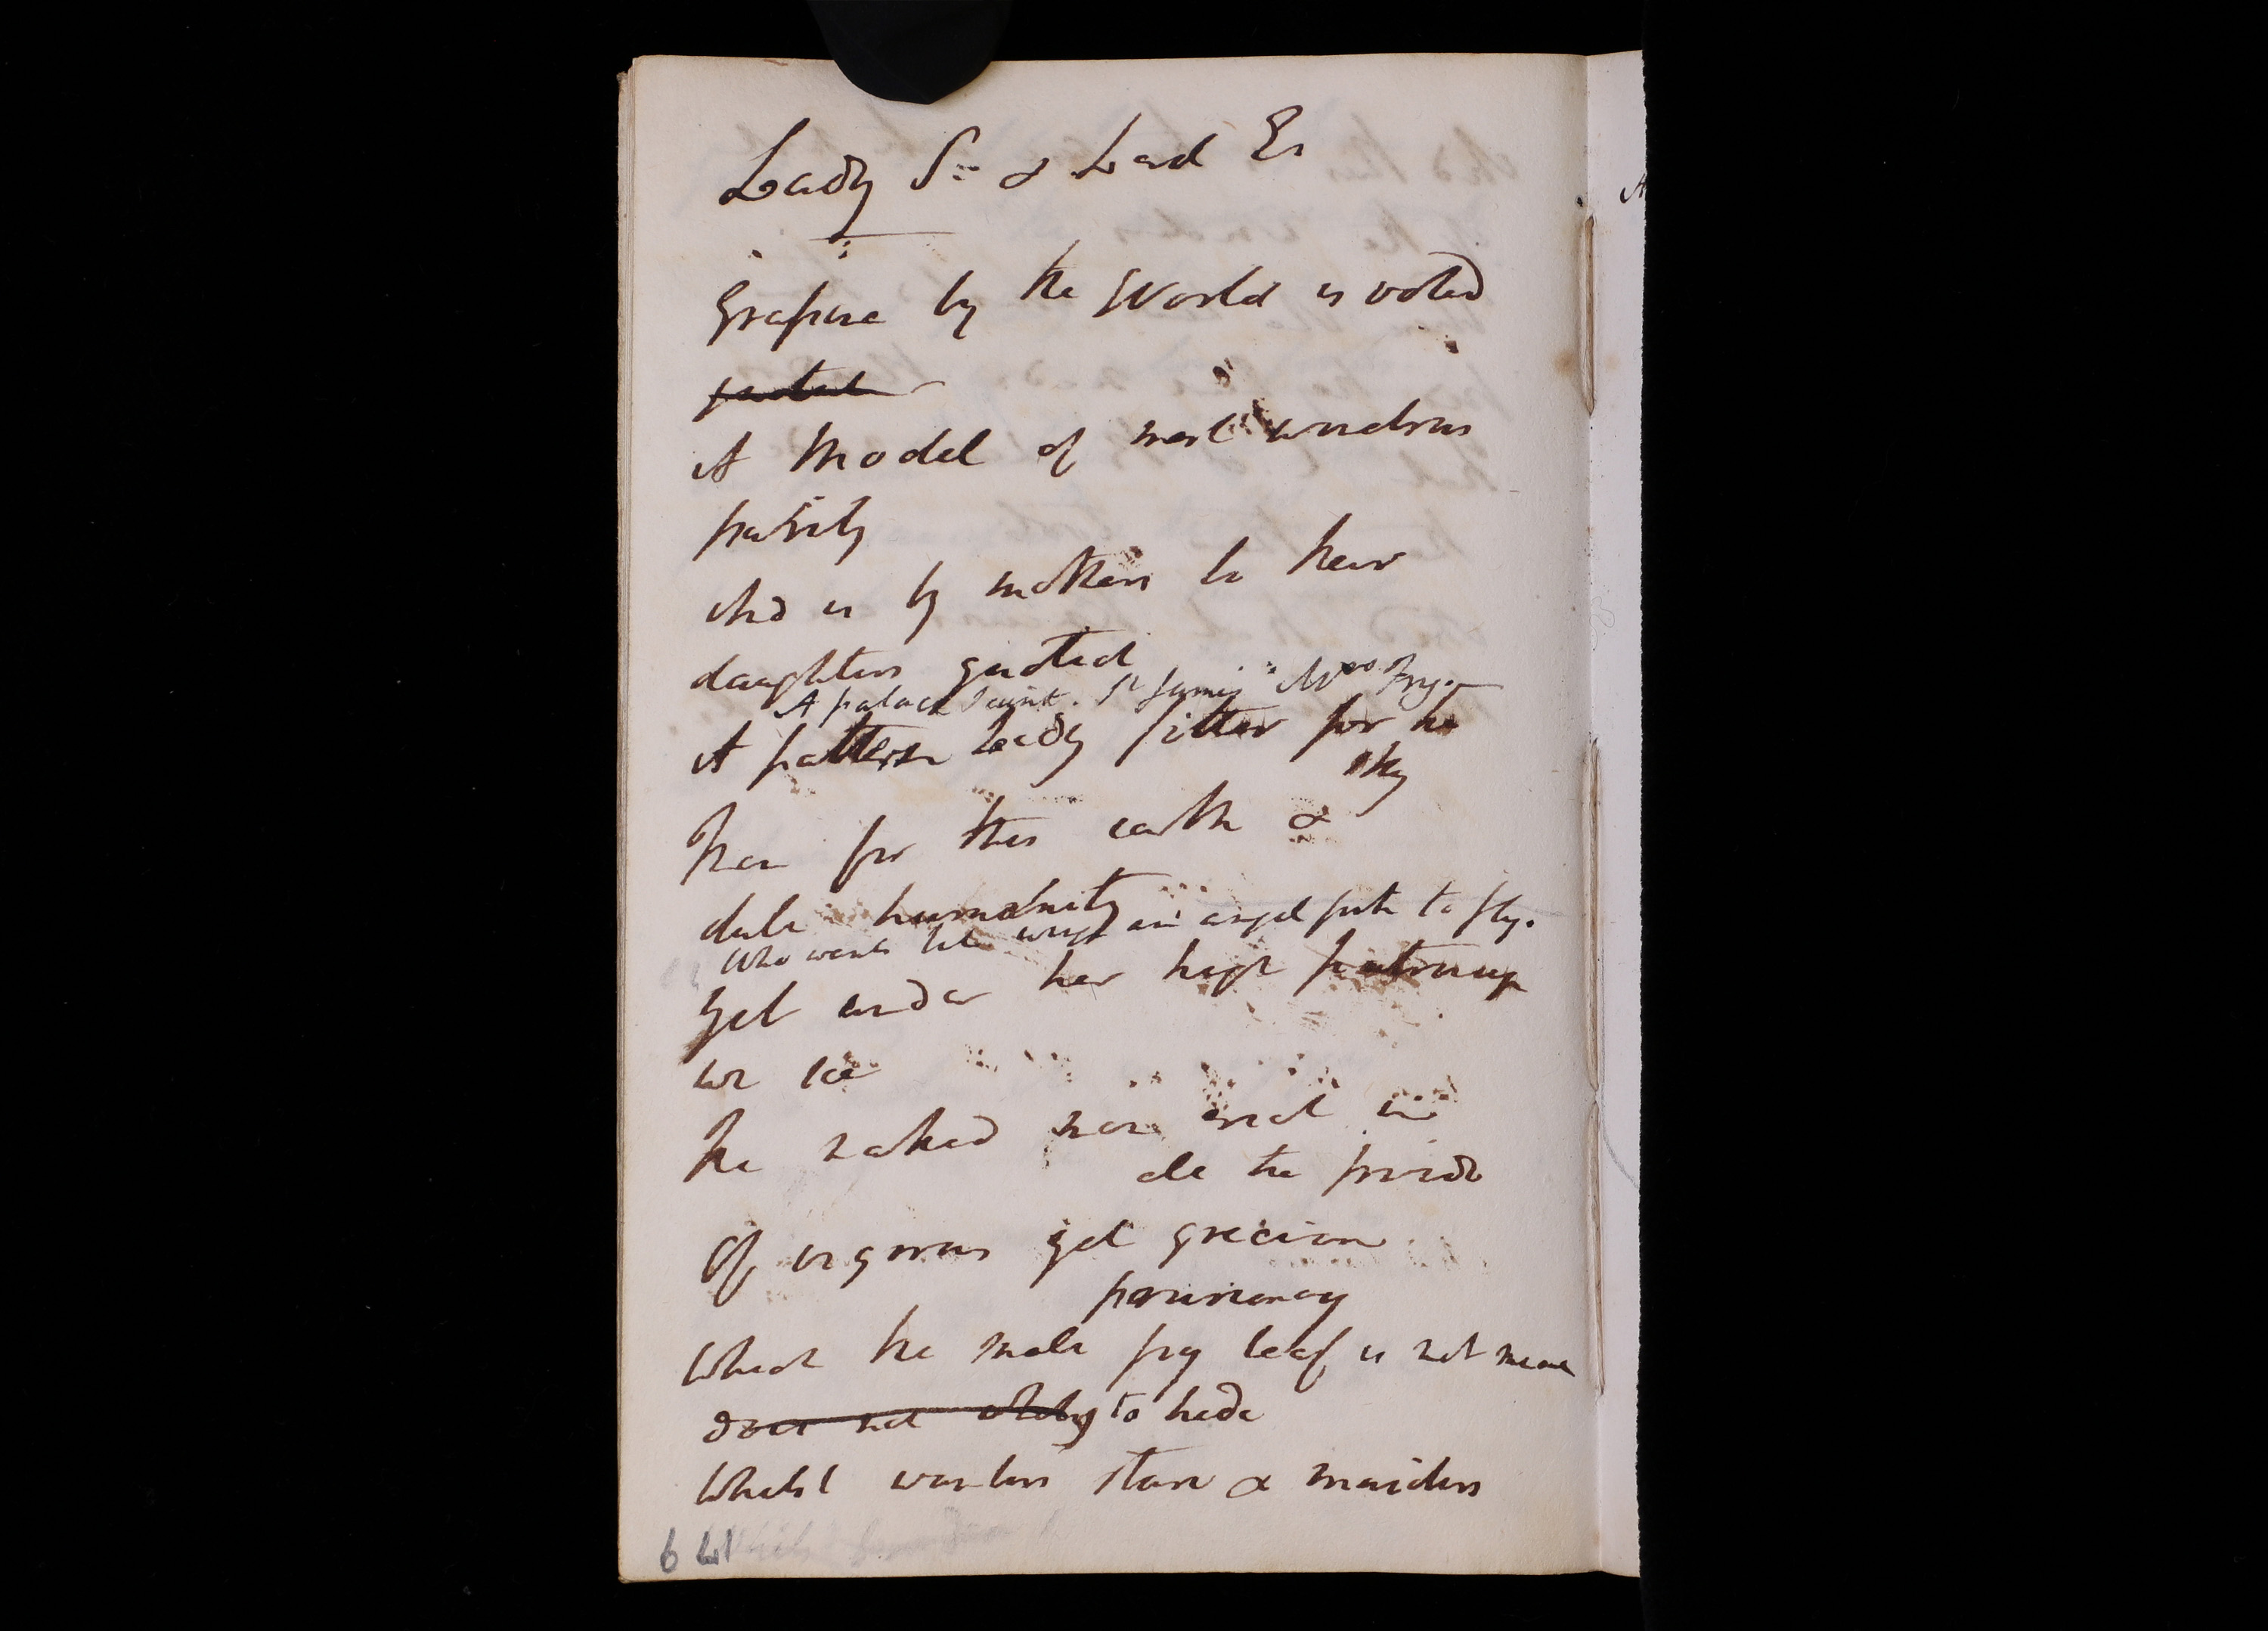 Lady S= & Lord Er
Grafina by the World is voted
A Model of most wondrous
purity
And is by mothers to their
daughters quoted
A palace Saint. St James' Mrs Fry.
A pattern Lady fitter for the
sky
Than for this earth &
dull humanity
Who wants but wings an angel forth to fly.
Yet under her high patronage
we see
The naked man erect in
all the pride
Of vigorous yet Grecian
The male fig leaf is not meant
does not to hide
Whilst wantons stare & maidens
6 41